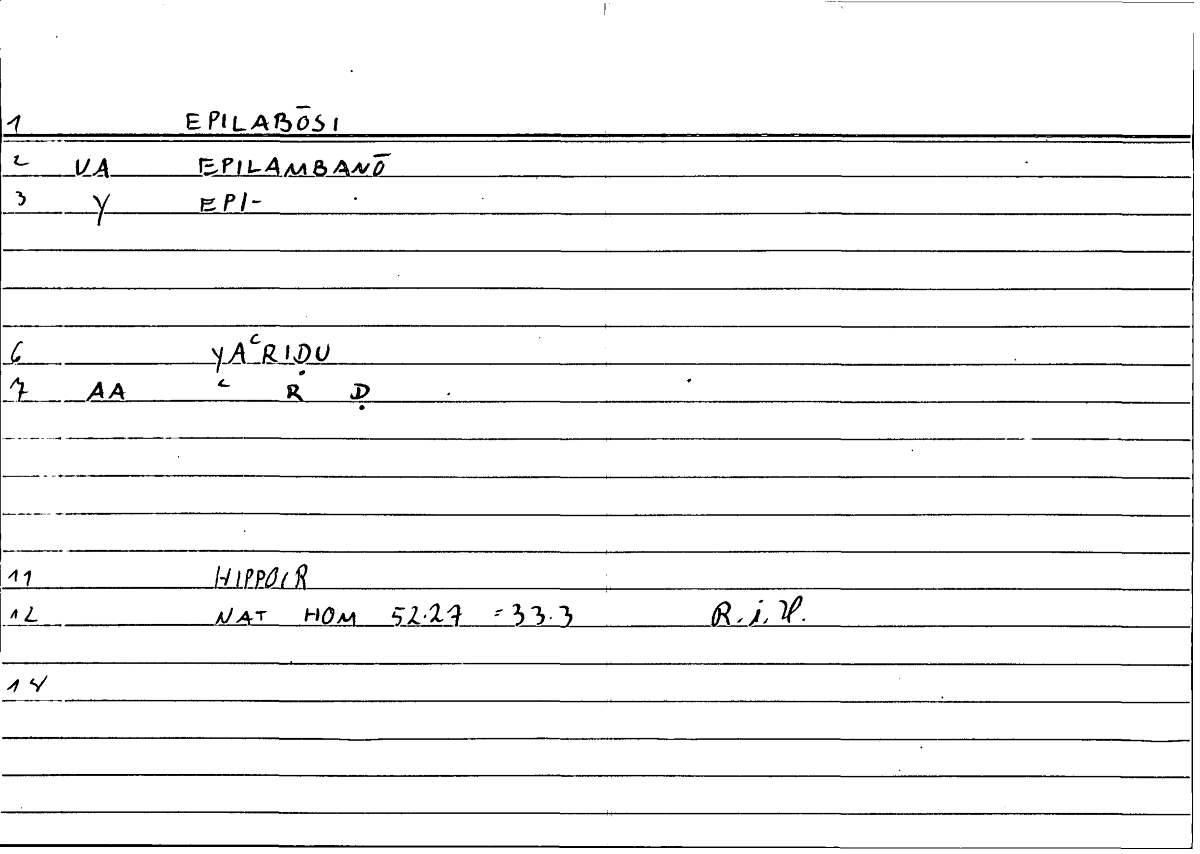 1 EPILABŌSI
2 VA EPILAMBANŌ
3 Y EPI-
6 YAʿRIḌU
7 AA ʿ R Ḍ
11 HIPPOCR
12 NAT HOM 52.27 = 33.3 R. i. H.
14